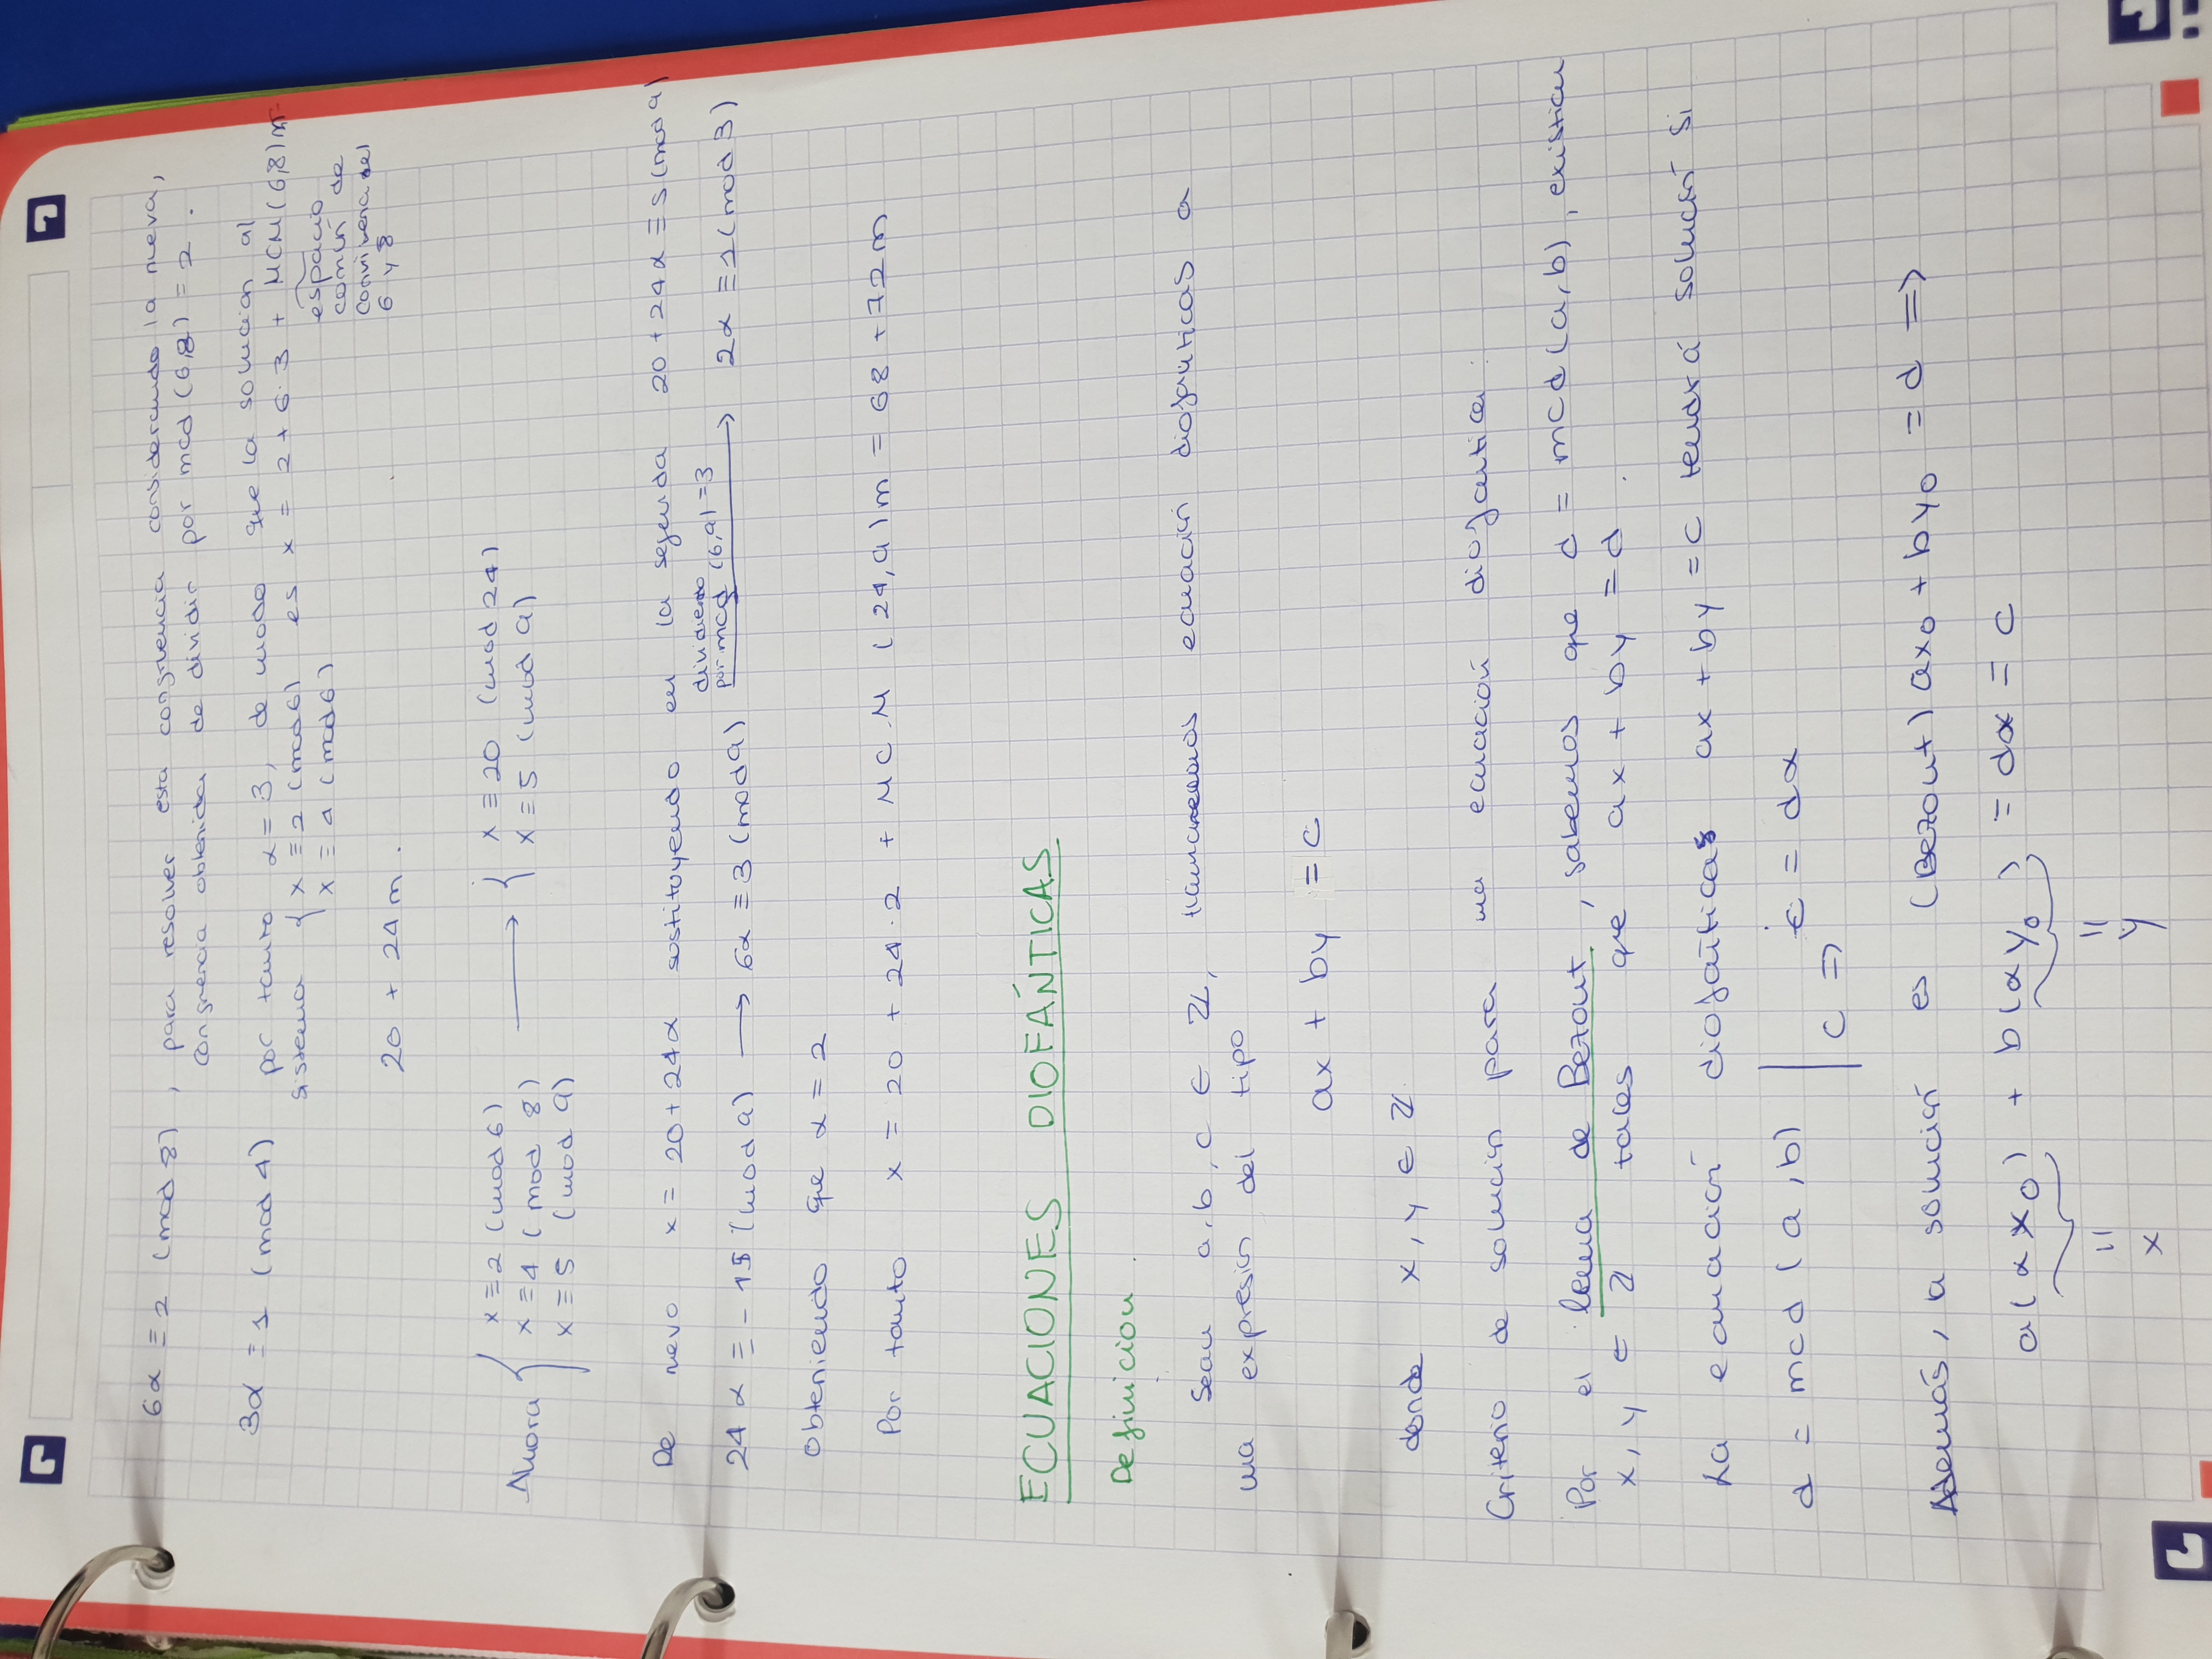 6α ≡ 2 (mod 8) , para resolver esta congruencia considerando la nueva,
congruencia obtenida de dividir por mcd (6,8) = 2 .
3α ≡ 1 (mod 4) por tanto α=3, de modo que la solucion al
sistema { x ≡ 2 (mod 6) es x = 2 + 6·3 + MCM (6,8) m =
x ≡ 4 (mod 6)
espacio
común de
convivencia del
6 y 8
20 + 24 m .
Ahora { x ≡ 2 (mod 6)
x ≡ 4 (mod 8)
x ≡ 5 (mod 9)
⟶ { x ≡ 20 (mod 24)
x ≡ 5 (mod 9)
De nuevo x = 20 + 24α sostituyendo en la segunda 20 + 24α ≡ 5 (mod 9)
24α ≡ -15 (mod 9) ⟶ 6α ≡ 3 (mod 9) dividiendo
por mcd (6,9) = 3 ⟶ 2α ≡ 1 (mod 3)
Obteniendo que α = 2
Por tanto x = 20 + 24·2 + M.C.M (24,9) m = 68 + 72 m
ECUACIONES DIOFÁNTICAS
Definicion .
Sean a, b, c ∈ ℤ, llamaremos ecuación diofánticas a
una expresión del tipo
ax + by = c
donde x, y ∈ ℤ
Criterio de solución para una ecuación diofantica :
Por el lema de Bezout, sabemos que d = mcd (a,b), existian
x, y ∈ ℤ tales que ax + by = d .
La ecuación diofánticas ax + by = c tendrá solución si
d = mcd (a,b) | c ⇒ c = dα
Además, a solución es (Bezout) ax0 + by0 = d ⇒
a(αx0) + b(αy0) = dα = c
" "
x y